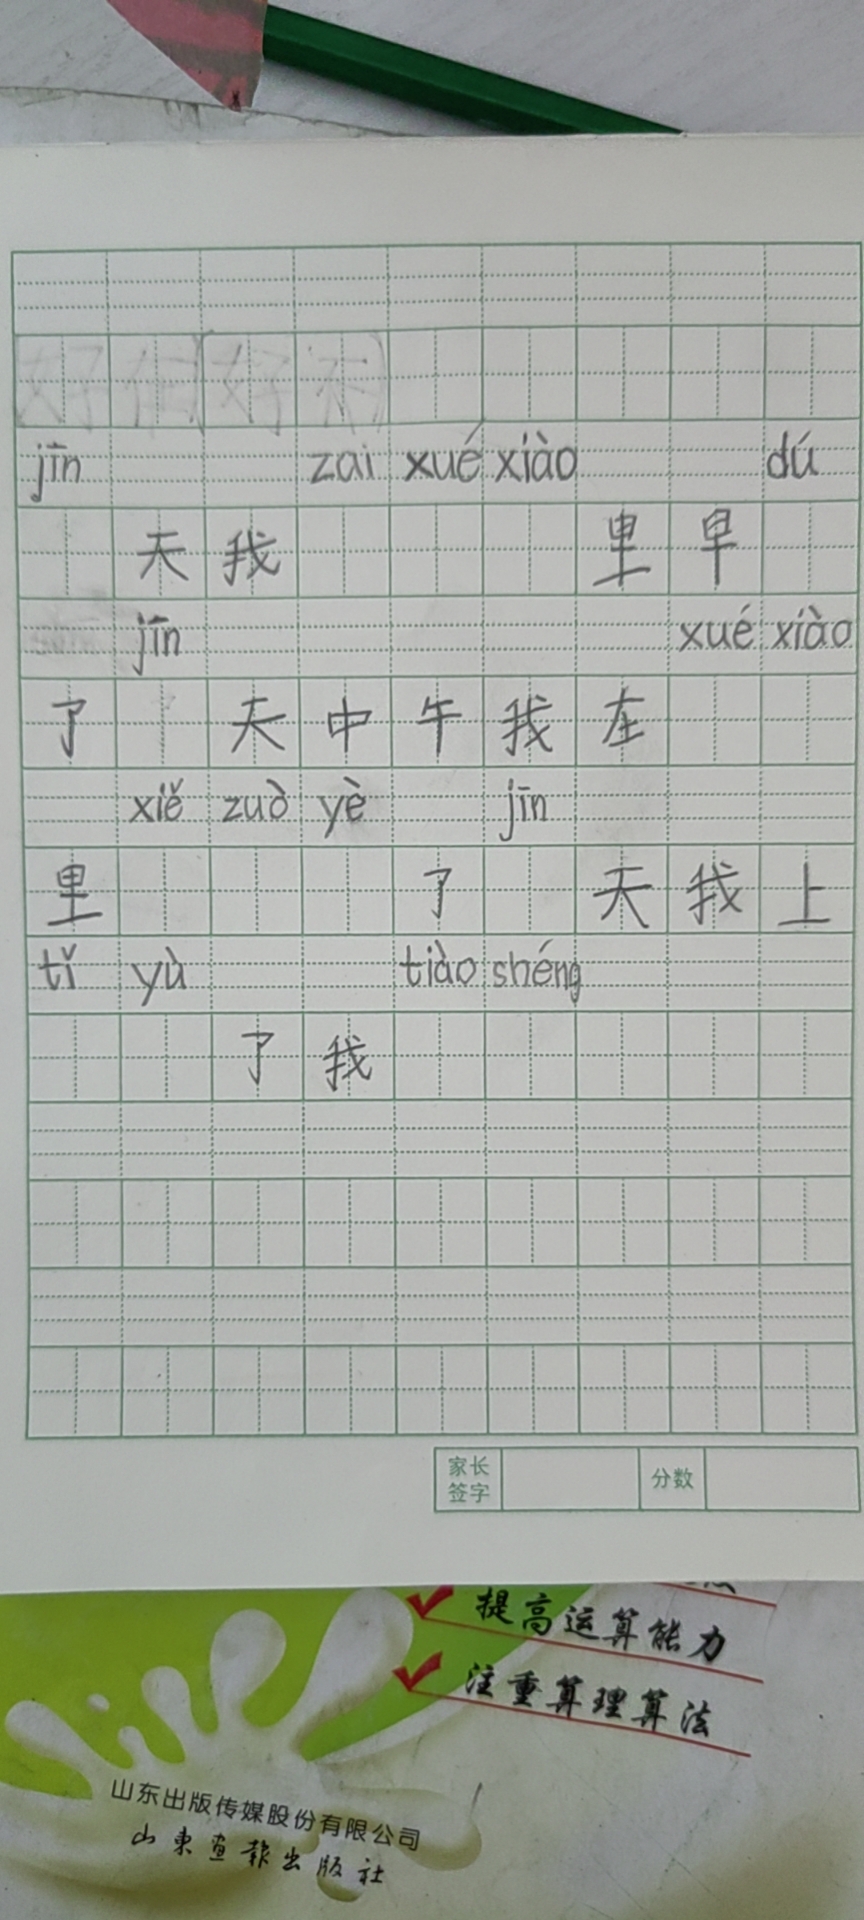 jīn zai xué xiào dú
天 我 里 早
jīn xué xiào
了 天 中 午 我 在
xiě zuò yè jīn
里 了 天 我 上
tǐ yù tiào shéng
了 我
家长签字 分数
提高运算能力
注重算理算法
山东出版传媒股份有限公司
山东画报出版社